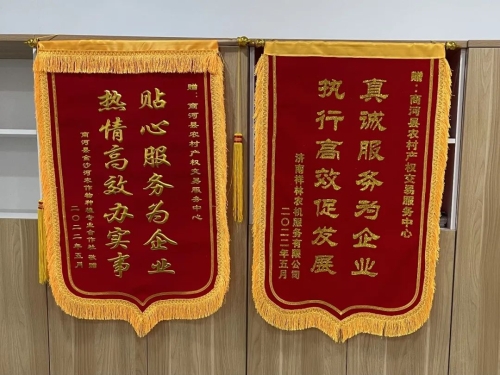 赠：商河县农村产权交易服务中心
贴心服务为企业
热情高效办实事
商河县金沙河农作物种植专业合作社 敬赠
二〇二二年五月
赠：商河县农村产权交易服务中心
真诚服务为企业
执行高效促发展
济南祥林农机服务有限公司
二〇二二年五月